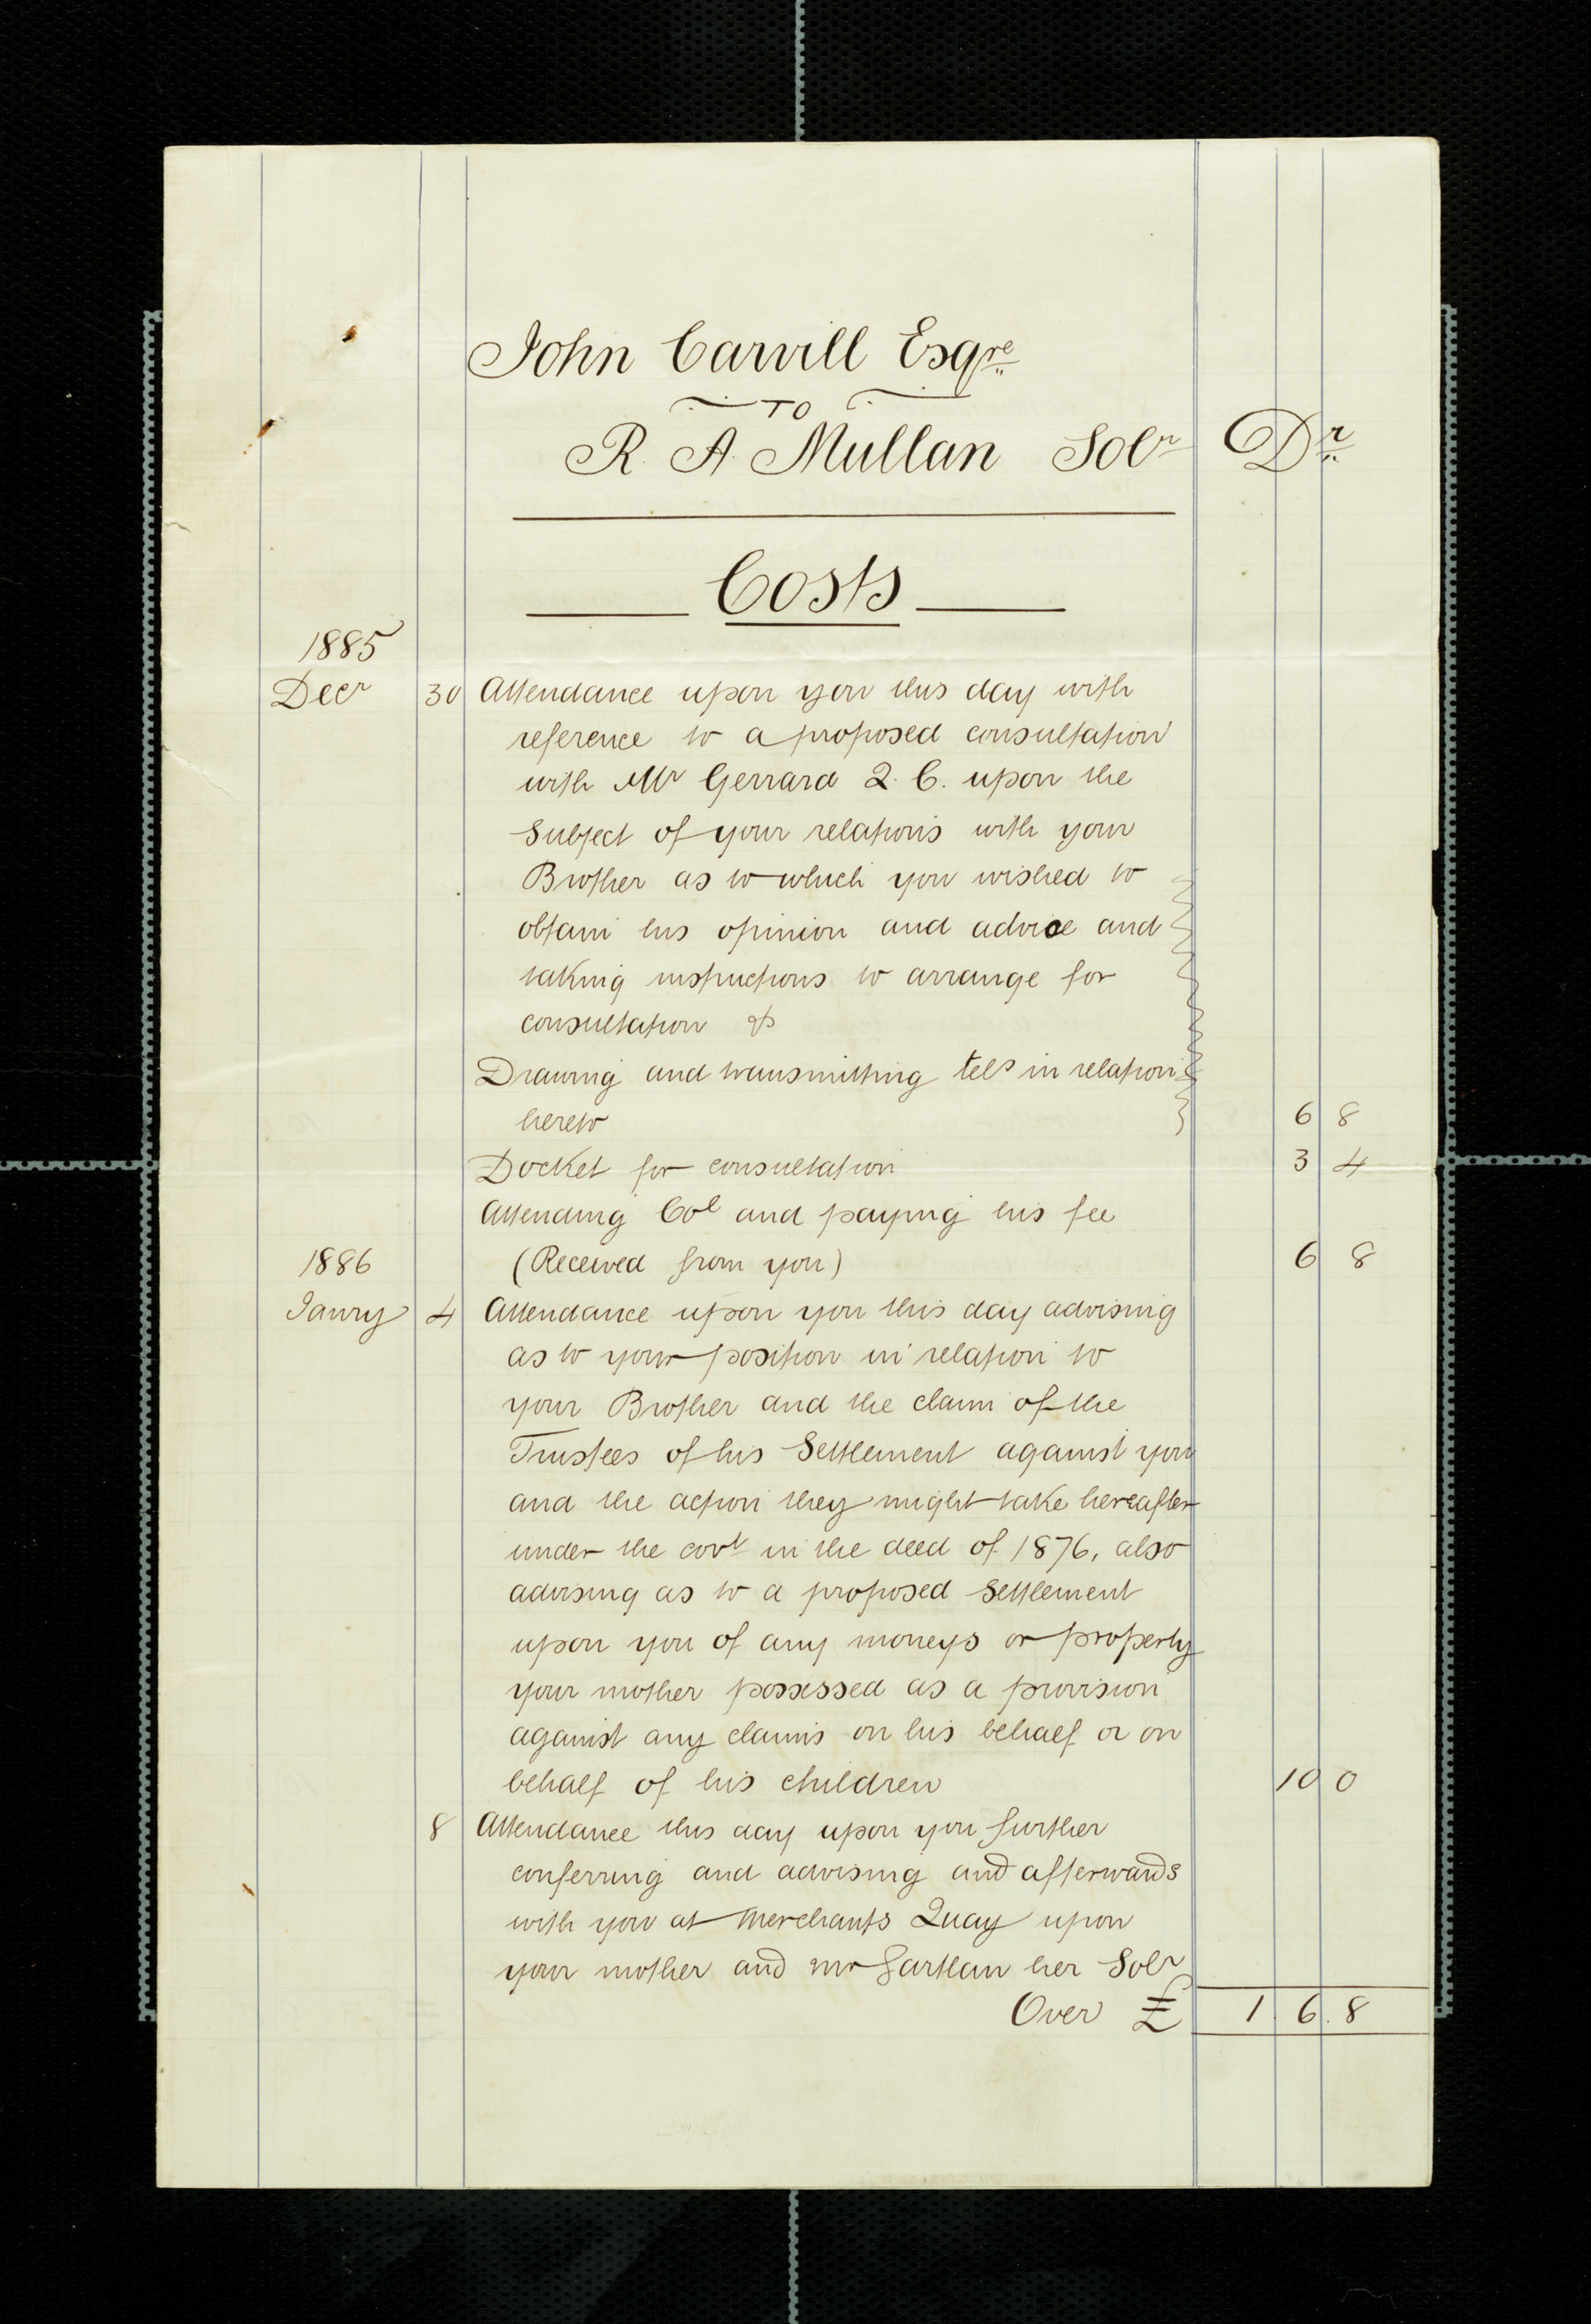 John Carvill Esqre
TO
R. A. Mullan Solr Dr
Costs
1885
Decr 30 Attendance upon you this day with
reference to a proposed consultation
with Mr Gerrard Q. C. upon the
Subject of your relations with your
Brother as to which you wished to
obtain his opinion and advice and
taking instructions to arrange for
consultation &
Drawing and transmitting tels in relation
hereto 6 8
Docket for consultation 3 4
Attending Col and paying his fee
1886 (Received from you) 6 8
Janry 4 Attendance upon you this day advising
as to your position in relation to
your Brother and the claim of the
Trustees of his Settlement against you
and the action they might take hereafter
under the covt in the deed of 1876, also
advising as to a proposed Settlement
upon you of any moneys or property
your mother possessed as a provision
against any claims on his behalf or on
behalf of his children 10 0
8 Attendance this day upon you further
conferring and advising and afterwards
with you at Merchants Quay upon
your mother and Mr Gartlan her Solr
Over £ 1 . 6 . 8